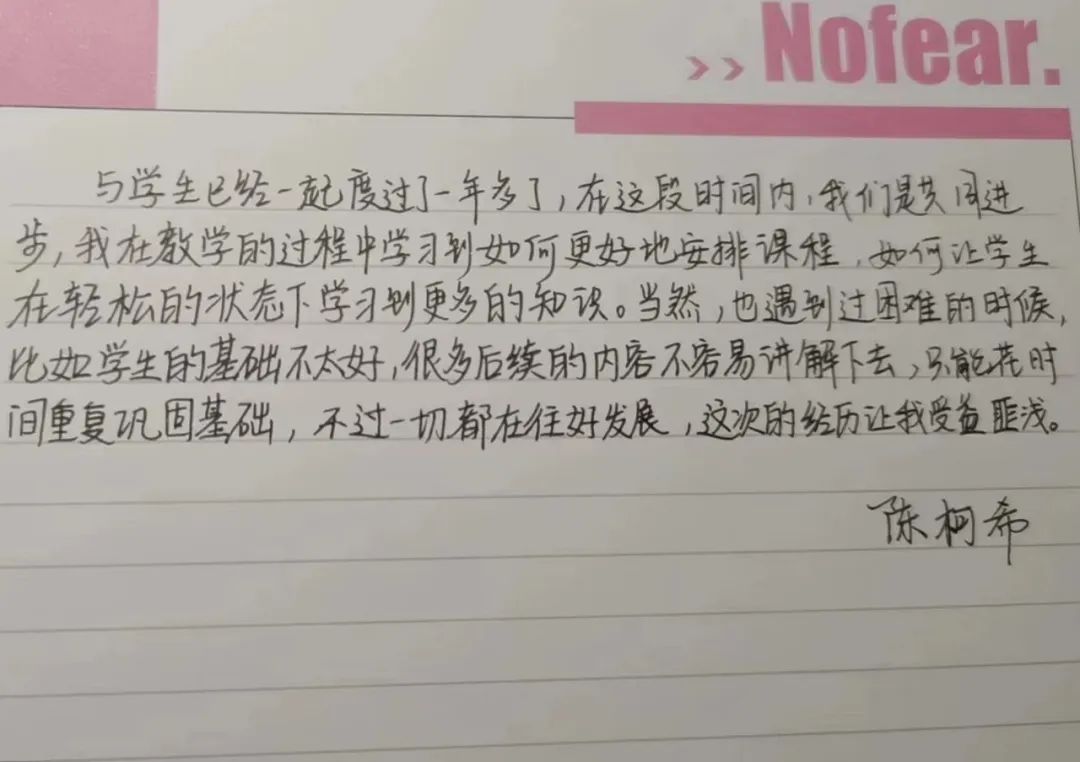 >> Nofear.
与学生已经一起度过了一年多了，在这段时间内，我们是共同进
步，我在教学的过程中学习到如何更好地安排课程，如何让学生
在轻松的状态下学习到更多的知识。当然，也遇到过困难的时候，
比如学生的基础不太好，很多后续的内容不容易讲解下去，只能花时
间重复巩固基础，不过一切都在往好发展，这次的经历让我受益匪浅。
陈柯希